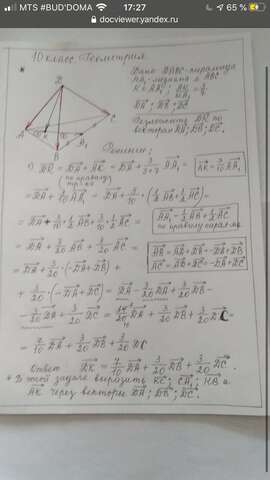 MTS #BUD'DOMA
17:27
65 %
docviewer.yandex.ru
10 класс Геометрия
Дано: DABC-пирамида
AA₁-медиана △ ABC
K∈AA₁;
DA; DB; DC
Разложить DK по
векторам DA; DB; DC.
Решение:
1) DK = DA + AK = DA + 3/(3+7) AA₁ =
AK = 3/10 AA₁
= DA + 3/10 AA₁ = DA + 3/10 · (1/2 AB + 1/2 AC) =
= DA + 3/10 · 1/2 AB + 3/10 · 1/2 AC =
AA₁ = 1/2 AB + 1/2 AC
по правилу
= DA + 3/20 AB + 3/20 AC =
AB = AD + DB = -DA + DB
AC = AD + DC = -DA + DC
= DA + 3/20 · (-DA + DB) +
+ 3/20 (-DA + DC) = DA - 3/20 DA + 3/20 DB -
- 3/20 DA + 3/20 DC = 14/20 DA + 3/20 DB + 3/20 DC =
= 7/10 DA + 3/20 DB + 3/20 DC
Ответ DK = 7/10 DA + 3/20 DB + 3/20 DC.
* В этой задаче выразить KC; CA₁; HB и
AK через векторы DA; DB; DC.